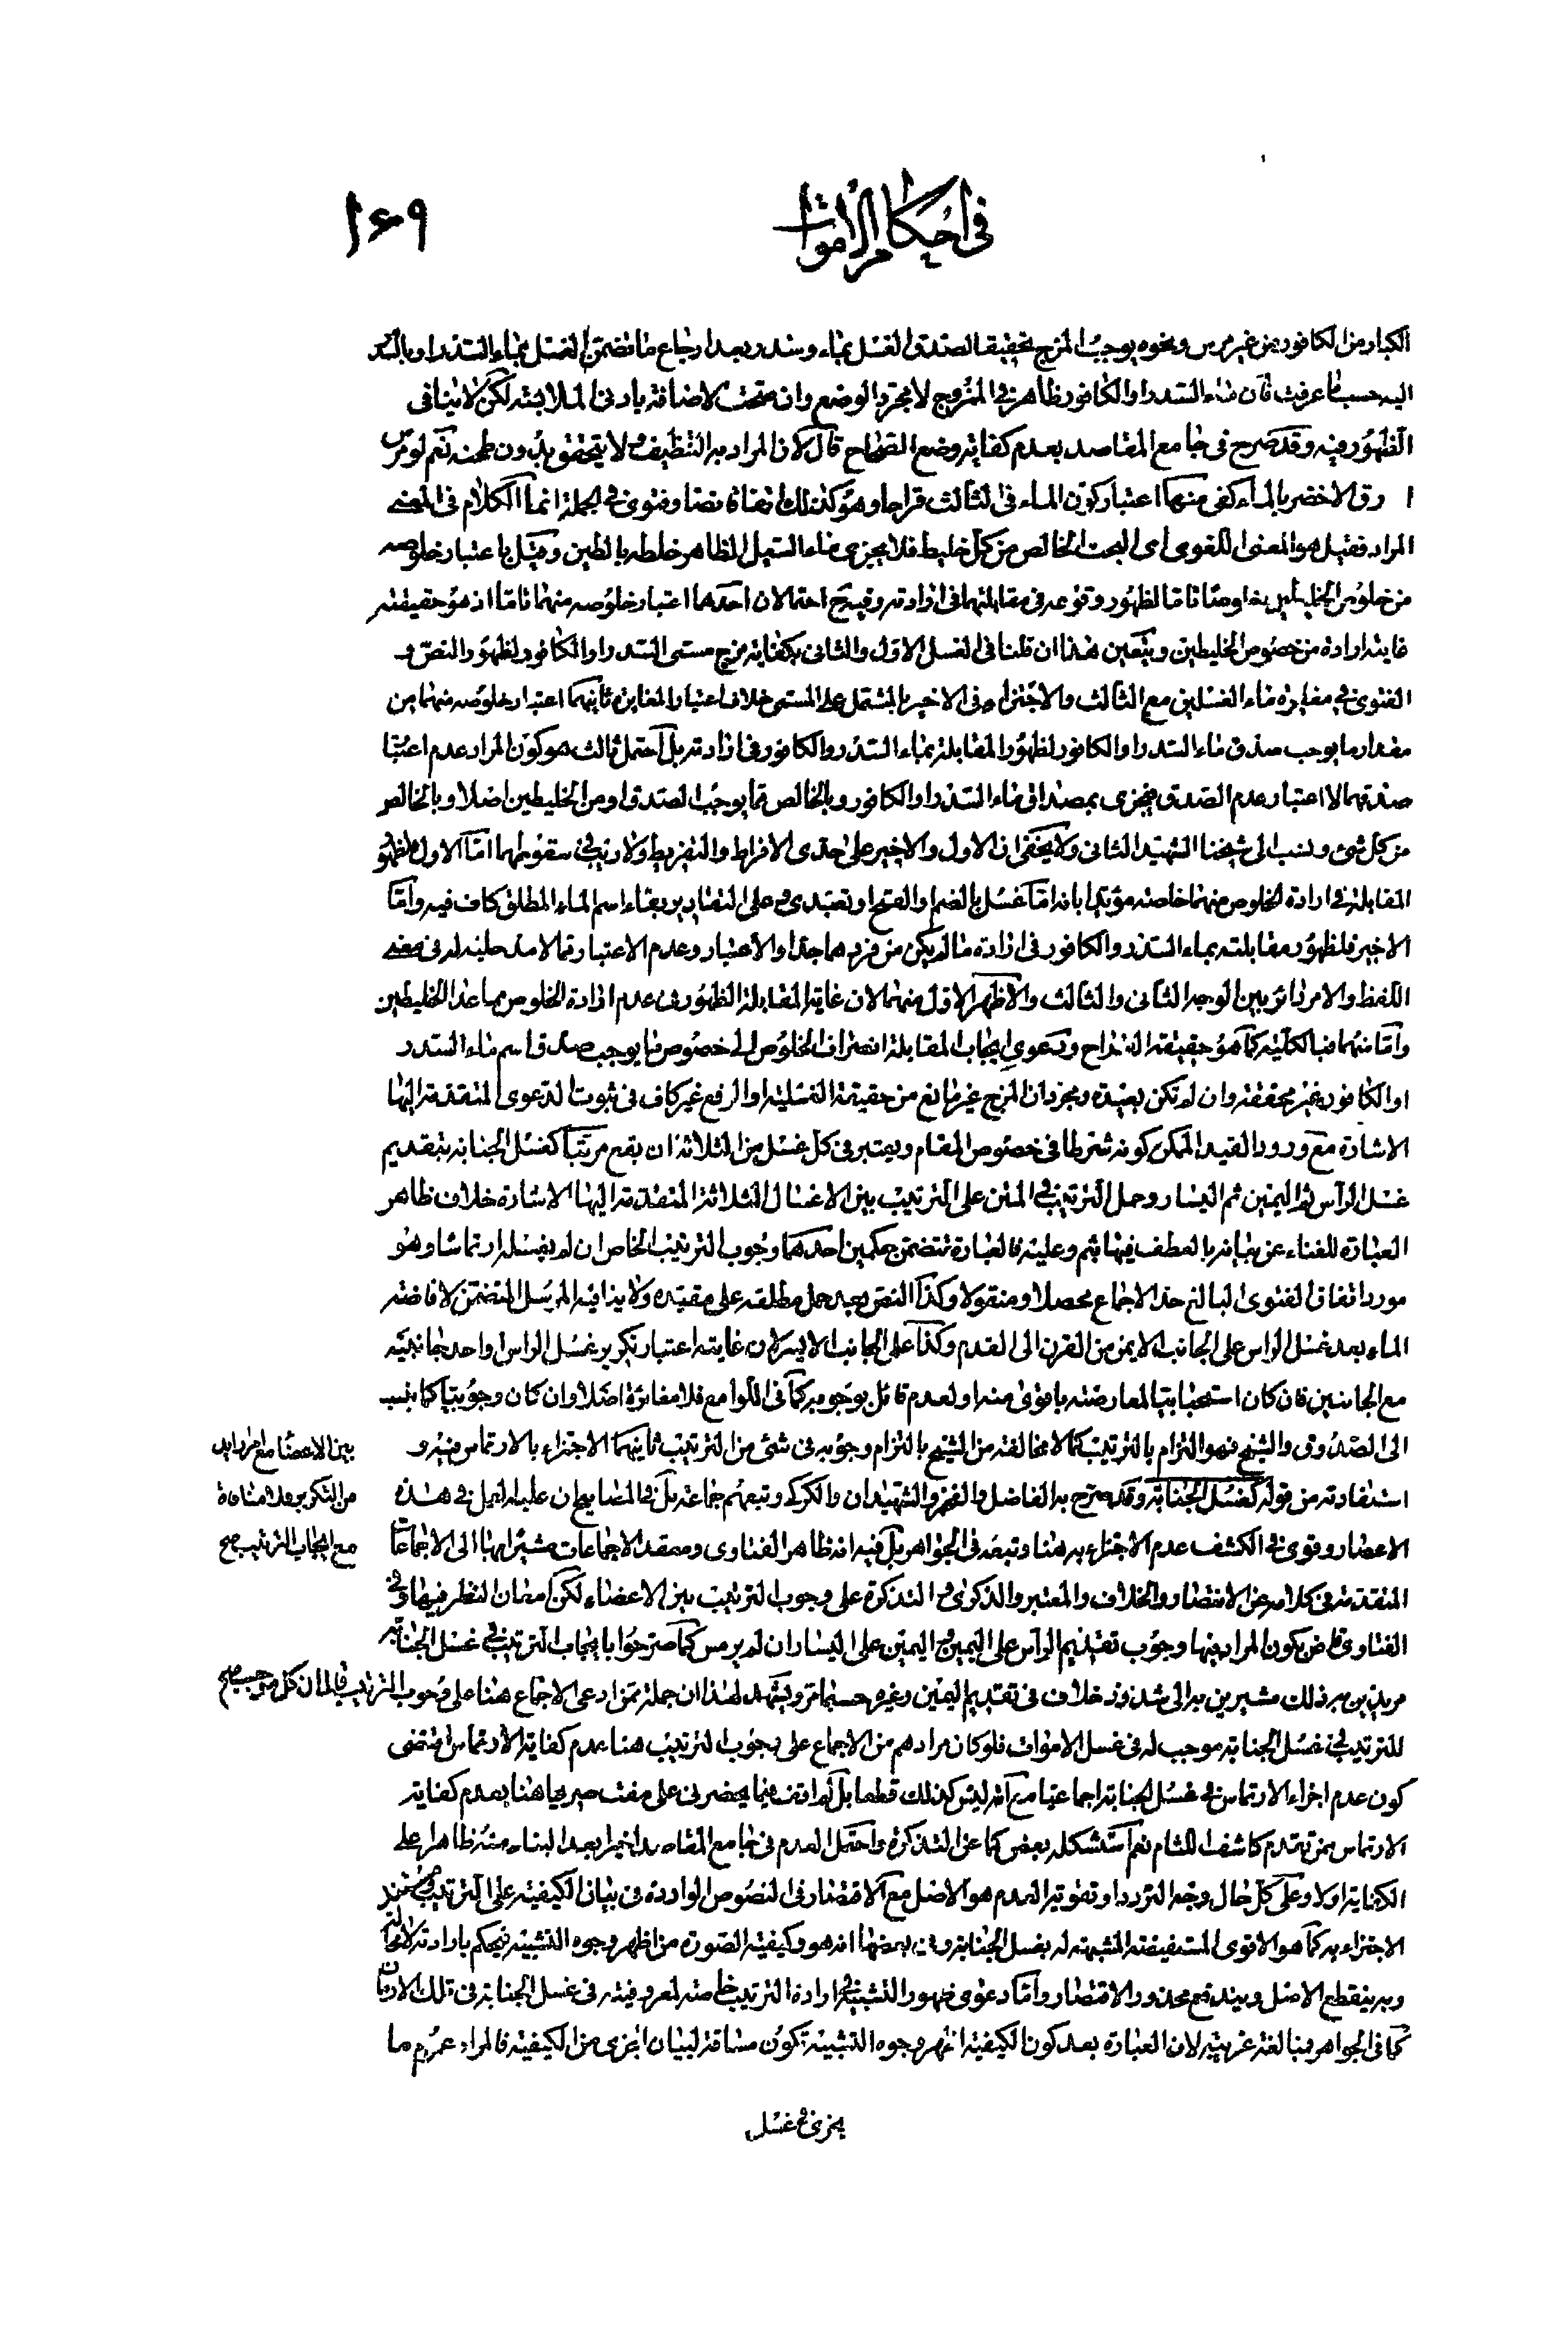 في احكام الاموات
١٦٩
الكبار من الكافور من غير مرس ونحوه يوجب المزج تحقيقا لصدق الغسل بماء وسدر بعد ارجاع ما تضمن الغسل بماء السدر او بالسدر
اليه حسبما عرفت فان ماء السدر او الكافور ظاهر في الممزوج لا مجرد الوضع وان صحت الاضافة بادنى الملابسة لكن لا ينافي
الظهور فيه وقد صرح في جامع المقاصد بعدم كفاية وضع الصحاح قال لان المراد به التنظيف ولا يتحقق بدون طحنه نعم لو مرس
ورق الاخضر بالماء كفى منها اعتبار كون الماء في الثالث قراحا وهو كذلك اتفاقا نصا وفتوى في الجملة انما الكلام في المعنى
المراد فقيل هو المعنى اللغوي اي البحت الخالص من كل خليط فلا يجزي ماء السيل الظاهر خلطه بالطين وقيل باعتبار خلوصه
من خلوص الخليطين الظهور وقوعه في مقابلتهما في ارادته وفيه احتمالان احدهما اعتبار خلوصه منهما تاما اذ هو حقيقته
غايته ارادة من خصوص الخليطين ويتعين هذا ان قلنا في الغسل الاول والثاني بكفاية مزج مسمى السدر او الكافور لظهور النص و
الفتوى في مغايرة ماء الغسلين مع الثالث والاجتزاء في الاخير بالمشتمل على المسمى خلاف اعتبار المغايرة ثانيهما اعتبار خلوصه منهما من
مقدار ما يوجب صدق ماء السدر او الكافور لظهور المقابلة بماء السدر والكافور في ارادته بل احتمل ثالث هو كون المراد عدم اعتبا
صدقهما لا اعتبار عدم الصدق فيجزي بمصداق ماء السدر او الكافور وبالخالص مما يوجب الصدق او من الخليطين اصلا وبالخالص
من كل شئ ونسب الى شيخنا الشهيد الثاني ولا يخفى ان الاول والاخير على حدي الافراط والتفريط ولا ريب في سقوطهما اما الاول فلظهو
المقابلة في ارادة الخلوص منهما خاصة مؤيدا بانه اما غسل بالضم او الفتح او تعبدي وعلى التقادير بقاء اسم الماء المطلق كاف فيه واما
الاخير فلظهور مقابلته بماء السدر والكافور في ارادة ما لم يكن من فردهما جدا والاعتبار وعدم الاعتبار مما لا مدخلية له في معنى
اللفظ والامر دائر بين الوجه الثاني والثالث والاظهر الاول منهما لان غاية المقابلة الظهور في عدم ارادة الخلوص مما عدا الخليطين
واما منهما فبالكلية كما هو حقيقة القراح ودعوى ايجاب المقابلة انصراف الخلوص الى خصوص ما يوجب صدق اسم ماء السدر
او الكافور غير محققة وان لم تكن بعيدة ومجرد ان المزج غير مانع من حقيقة الغسلية او الرفع غير كاف في ثبوت الدعوى المتقدمة اليها
الاشارة مع ورود القيد الممكن كونه شرطا في خصوص المقام ويعتبر في كل غسل من الثلاثة ان يقع مرتبا كغسل الجنابة بتقديم
غسل الرأس ثم اليمين ثم اليسار وحمل الترتيب في المتن على الترتيب بين الاغسال الثلاثة المتقدمة اليها الاشارة خلاف ظاهر
العبارة للغناء عن بيانه بالعطف فيها بثم وعليه فالعبارة تتضمن حكمين احدهما وجوب الترتيب الخاص ان لم يغسله ارتماسا وهو
مورد اتفاق الفتوى البالغ حد الاجماع محصلا ومنقولا وكذا النص بعد حمل مطلقه على مقيده ولا ينافيه المرسل المتضمن لافاضة
الماء بعد غسل الرأس على الجانب الايمن من القرن الى القدم وكذا على الجانب الايسر لان غايته اعتبار تكرير غسل الرأس او احد جانبيه
مع الجانبين فان كان استحبابيا لمعارضته باقوى منه او لعدم قائل بوجوبه كما في اللوامع فلا مغايرة اصلا وان كان وجوبيا كما ينسب
الى الصدوق والشيخ فهو التزام بالترتيب كما لا مخالفة من الشيخ بالتزام وجوبه في شئ من الترتيب ثانيهما الاجتزاء بالارتماس فيه و
بين الاعضاء
استفادته من قوله كغسل الجنابة وقد صرح به الفاضل والفخر والشهيدان والكركي وتبعهم جماعة بل في المصابيح ان عليه العمل في هذه
من التكرير
الاعصار وقوى في الكشف عدم الاجتزاء به هنا وتبعه في الجواهر بل فيه انه ظاهر الفتاوى ومعقد الاجماعات مشيرا بها الى الاجماعات
مع ايجاب الترتيب صح
المتقدمة في كلامه عن الانتصار والخلاف والمعتبر والذكرى والتذكرة على وجوب الترتيب بين الاعضاء لكن امعان النظر فيها وفي
الفتاوى قاض بكون المراد فيها وجوب تقديم الرأس على اليمين واليمين على اليسار ان لم يرمس كما صرحوا بايجاب الترتيب في غسل الجنابة
مريدين به ذلك مشيرين به الى شذوذ خلاف في تقديم اليمين وغيره حسبما مر ويشهد لهذا ان جملة ممن ادعى الاجماع هنا على وجوب الترتيب قالها ان كل موجب صح
للترتيب في غسل الجنابة موجب له في غسل الاموات فلو كان مرادهم من الاجماع على وجوب الترتيب هنا عدم كفاية الارتماس اقتضى
كون عدم اجزاء الارتماس في غسل الجنابة اجماعيا مع انه ليس كذلك قطعا بل لم اقف فيما يحضرني على مفت صريحا هنا بعدم كفاية
الارتماس ممن تقدم كاشف اللثام نعم استشكله بعض كما عن التذكرة واحتمل العدم في جامع المقاصد اخيرا بعد البناء منه ظاهرا على
الكفاية اولا وعلى كل حال وجه التردد او تقوية العدم هو الاصل مع الاقتصار في النصوص الواردة في بيان الكيفية على الترتيب ومستند
الاجتزاء به كما هو الاقوى المستفيضة المشبهة له بغسل الجنابة وفي بعضها انه هو وكيفية الصورة من اظهر وجوه التشبيه فيحكم بارادته لا محالة
وبه ينقطع الاصل ويندفع محذور الاقتصار واما دعوى ظهور التشبيه في ارادة الترتيب خاصة لمعروفيته في غسل الجنابة في تلك الازمان
كما في الجواهر فمبالغة غريبة لان العبارة بعد كون الكيفية اظهر وجوه التشبيه تكون مساقة لبيان المجزي من الكيفية فالمراد عموم ما
يجزي في غسل